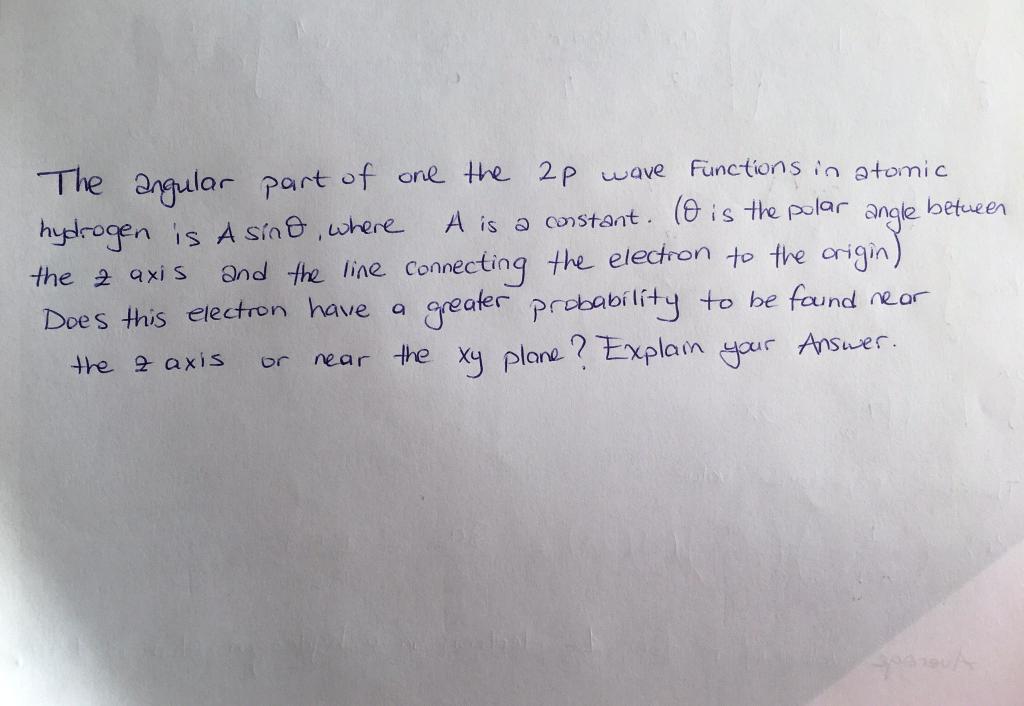 The angular part of one the 2p wave Functions in atomic
hydrogen is A sinθ, where A is a constant. (θ is the polar angle between
the z axis and the line connecting the electron to the origin)
Does this electron have a greater probability to be found near
the z axis or near the xy plane? Explain your Answer.